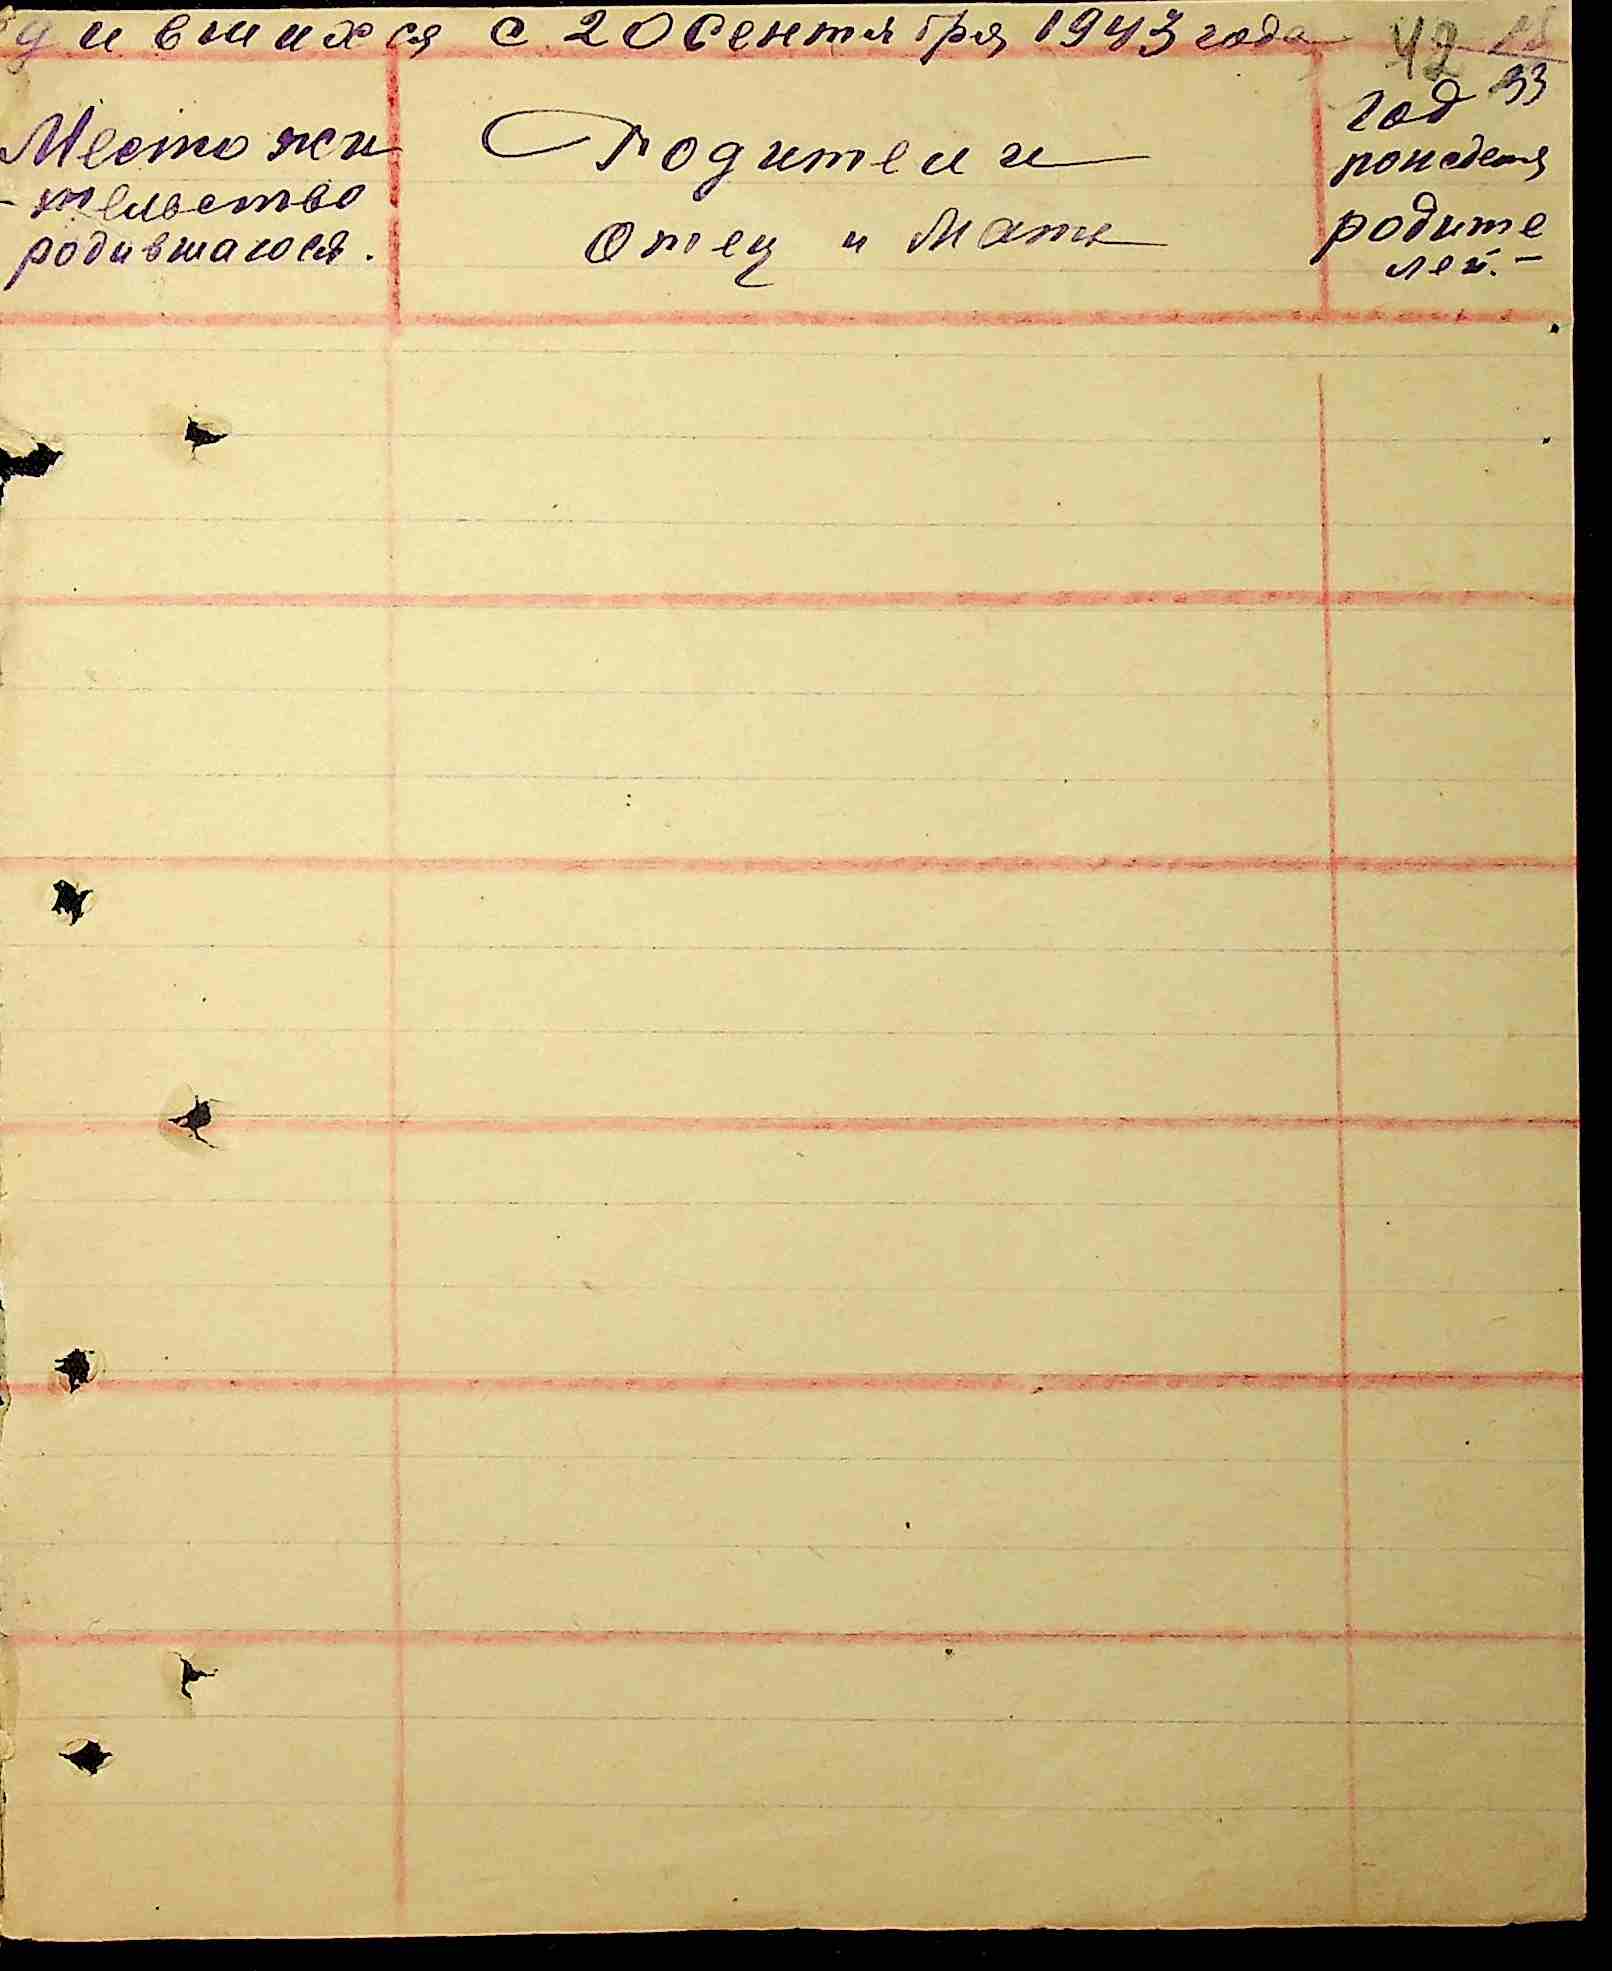 дившихся с 20 Сентября 1943 года 42
33
Место жи
тельство
родившагося.
Родители
Отец и Мать
Год
рождения
родите
лей.-